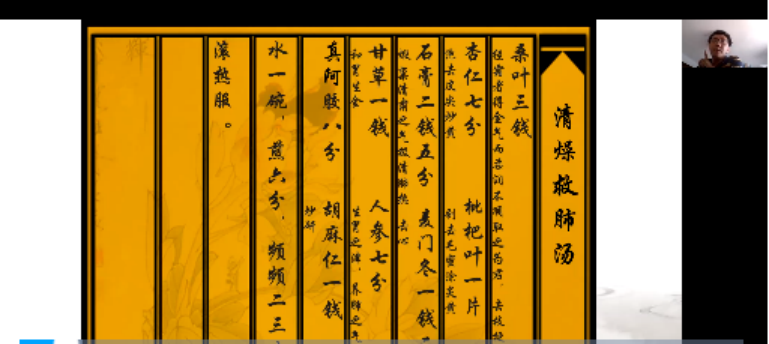 清燥救肺汤
桑叶三钱
经霜者得金气而柔润不凋取之为君，去枝梗
杏仁七分 枇杷叶一片
去皮尖炒黄 刷去毛蜜涂炙黄
石膏二钱五分 麦门冬一钱
煅禀清肃之气极清肺热 去心
甘草一钱 人参七分
和胃生金 生胃之津，养肺之气
真阿胶八分 胡麻仁一钱
炒研
水一碗，煎六分，频频二三
滚热服。